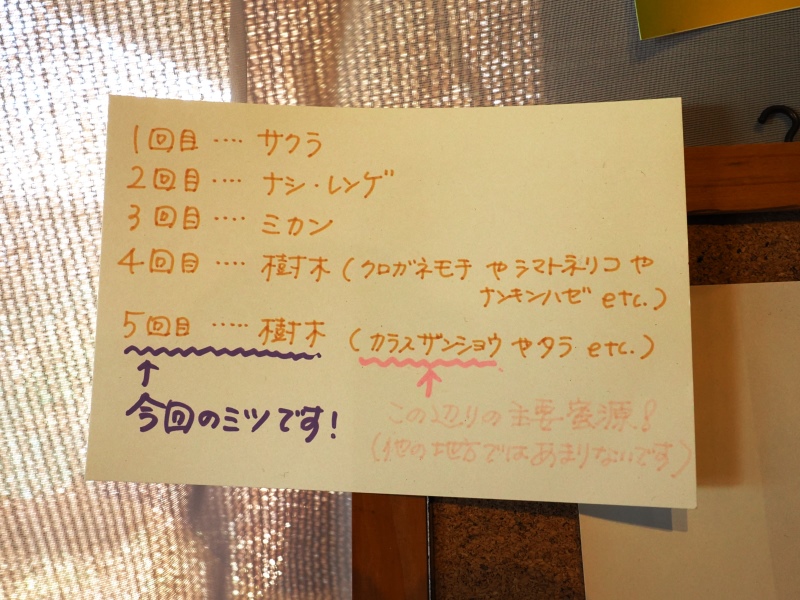 1回目 ‥‥ サクラ
2回目 ‥‥ ナシ・レンゲ
3回目 ‥‥ ミカン
4回目 ‥‥ 樹木 (クロガネモチ や シマトネリコ や
ナンキンハゼ etc.)
5回目 ‥‥‥ 樹木 (カラスザンショウ や タラ etc.)
↑
今回のミツです!
↑
この辺りの主要蜜源!
(他の地方ではあまりないです)